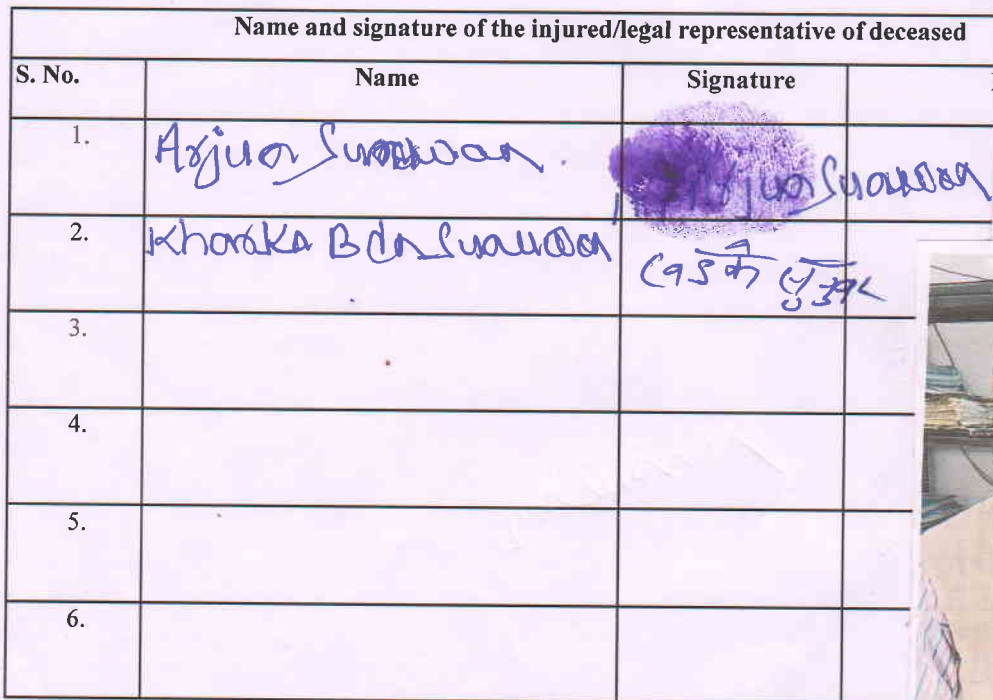 Name and signature of the injured/legal representative of deceased
S. No. Name Signature
1. Arjun Sunuwar.
2. Kharka Bdr Sunuwar
3.
4.
5.
6.